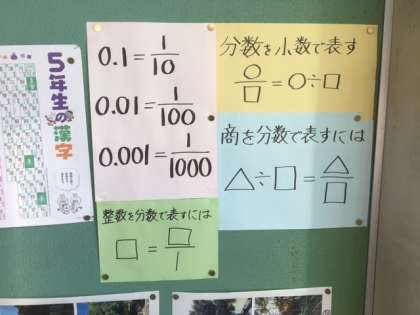 5年生の漢字
0.1 = 1/10
0.01 = 1/100
0.001 = 1/1000
整数を分数で表すには
□ = □/1
分数を小数で表す
○/□ = ○÷□
商を分数で表すには
△÷□ = △/□